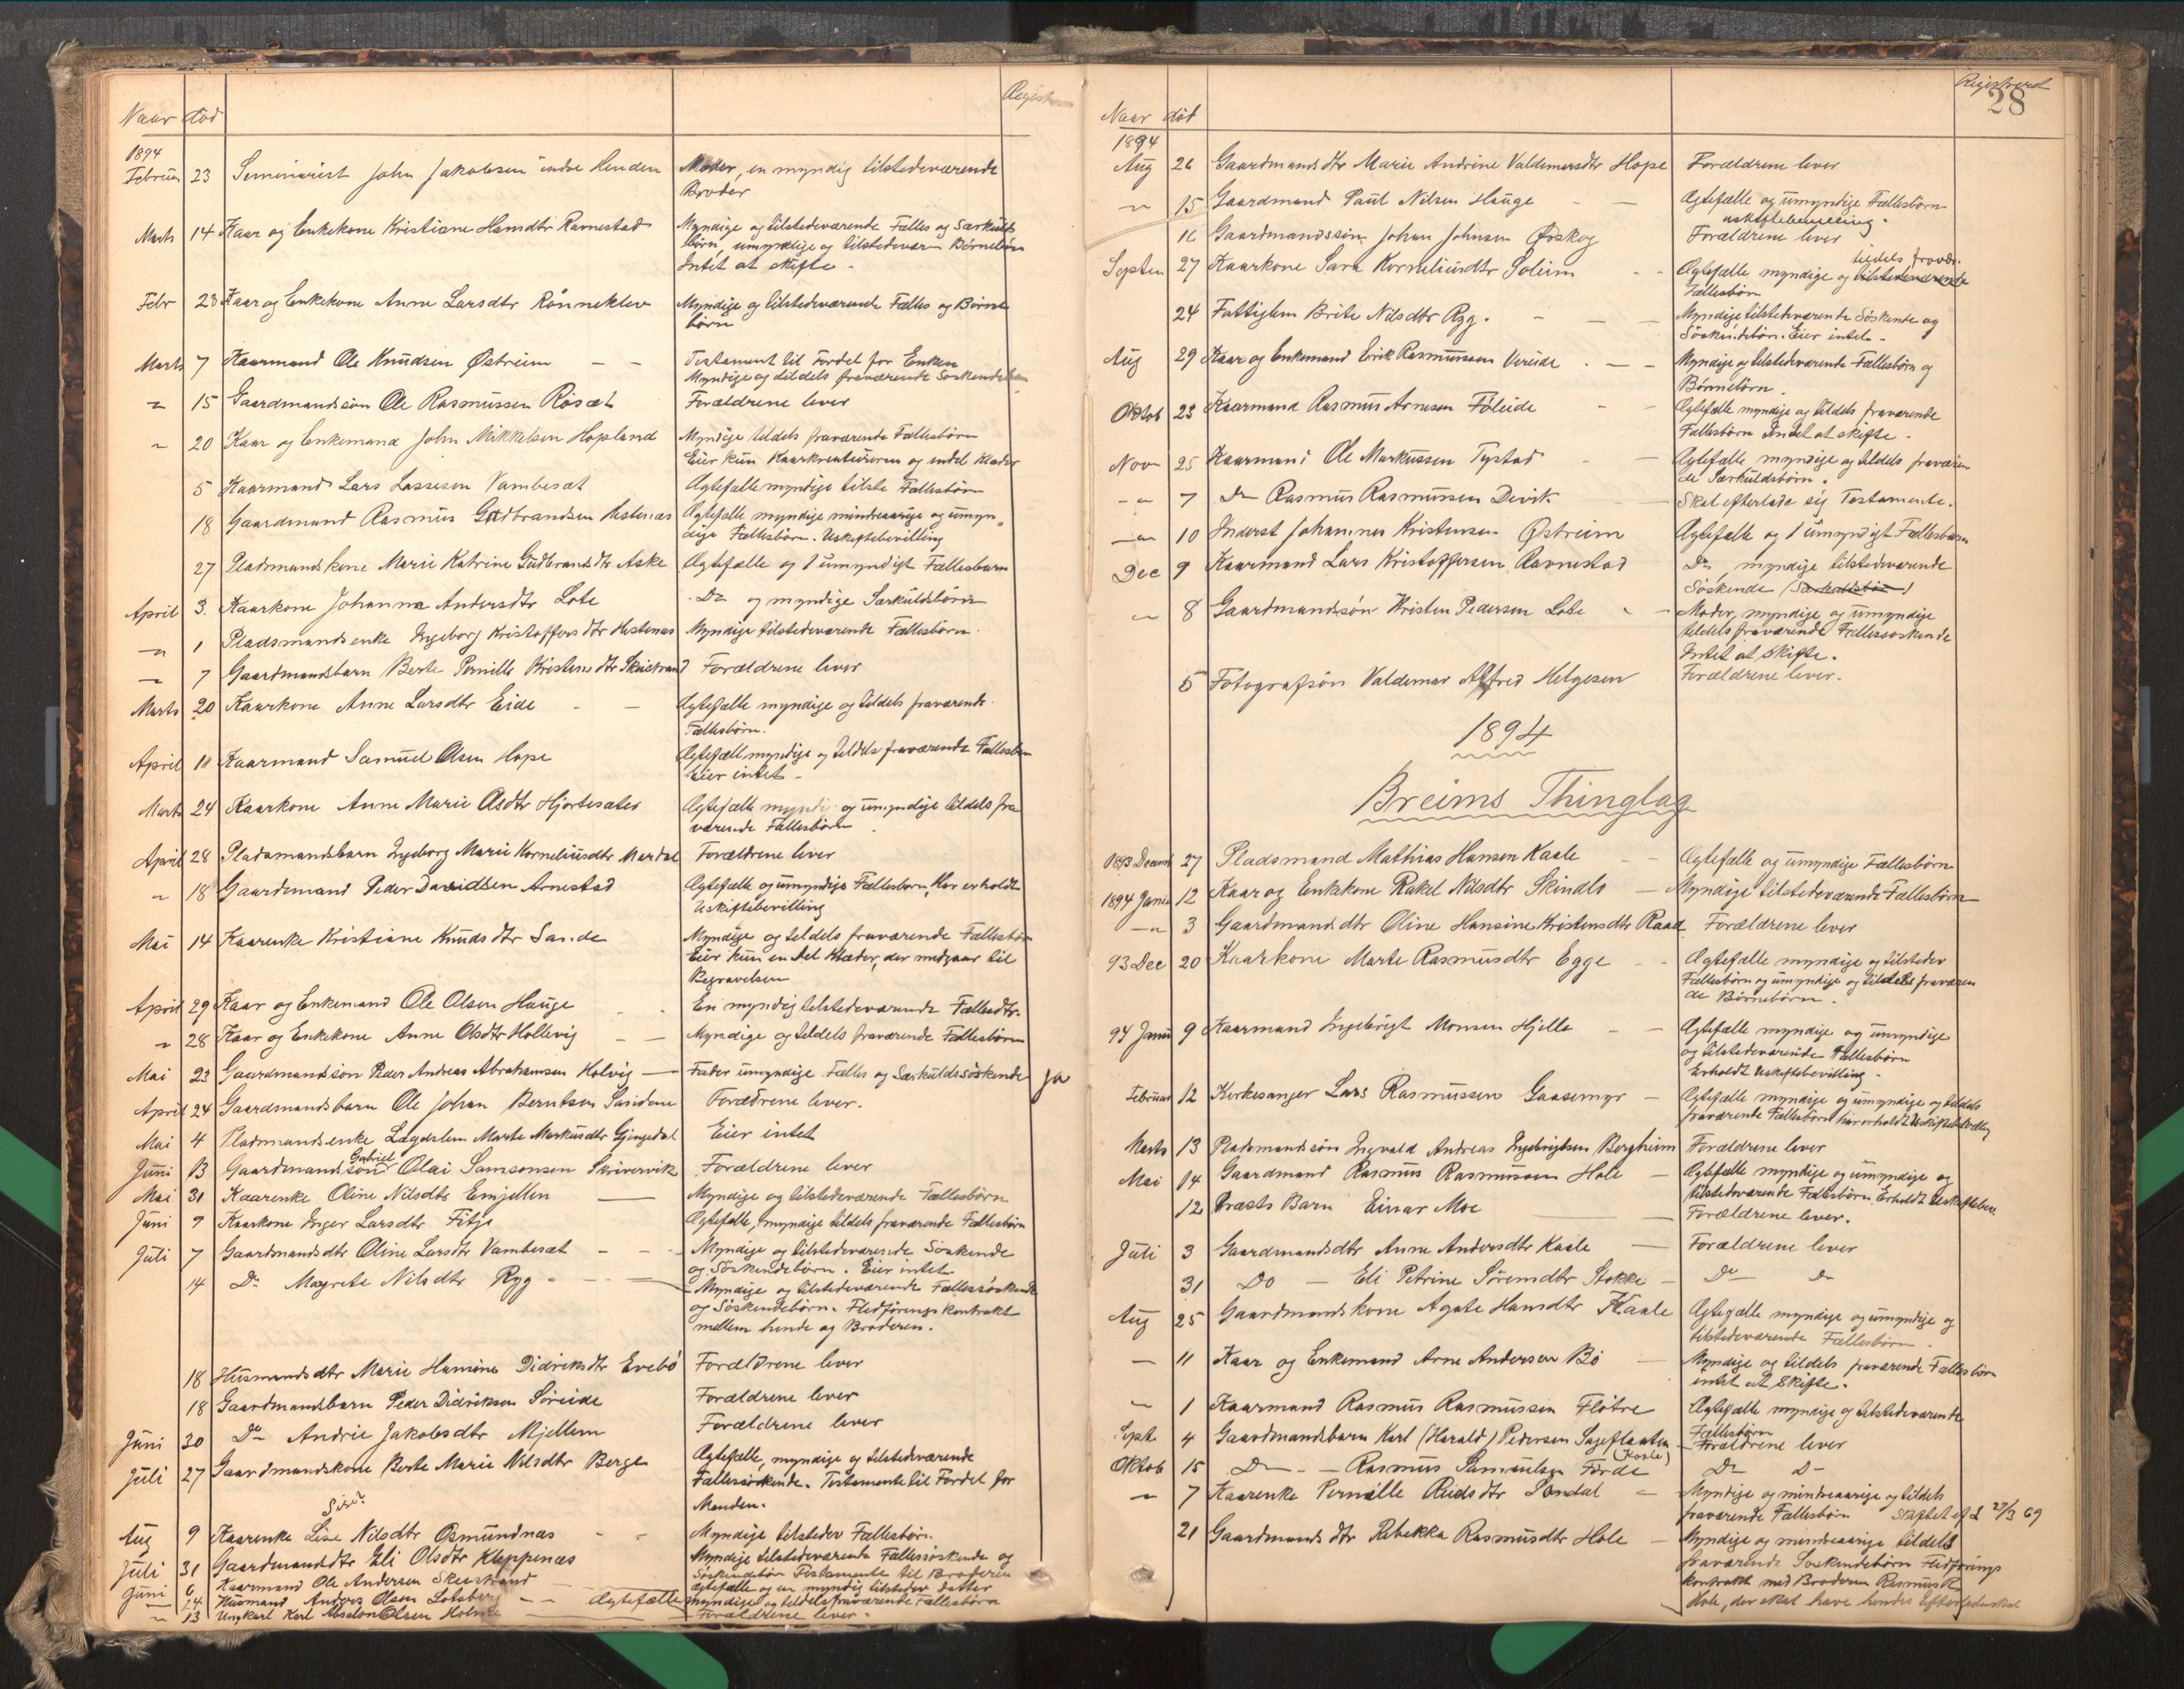 Naar død
1894
Februar 23 Seminarist John Jakobsen indre Henden Moder, en myndig tilstedeværende
Broder
Marts 14 Kaar og Enkekone Kristiane Hansdtr Ravnestad Myndige og tilstedeværende Fælles og Særkulds
børn umyndige og tilstedevær Børnebørn
Intet at skifte -
Febr 23 Kaar og Enkekone Anne Larsdtr Rønneklev Myndige og tilstedeværende Fælles og Børne
børn
Marts 7 Kaarmand Ole Knudsen Østreim - - Testament til Fordel for Enken
Myndige og tildels fraværende Søskendebørn
" 15 Gaardmandssøn Ole Rasmussen Røsæt Forældrene lever
" 20 Kaar og Enkemand John Mikkelsen Hopland Myndige tildels fraværende Fællesbørn
Eier kun Kaarkreaturerne og endel Klæder
5 Kaarmand Lars Lassesen Vambesæt Ægtefælle myndige tilste Fællesbørn
18 Gaardmand Rasmus Gudbrandsen Hestenæs Ægtefælle myndige mindreaarige og umyn-
dige Fællesbørn. Uskiftebevilling
27 Pladsmandskone Marie Katrine Gudbrandsdtr Aske Ægtefælle og 1 umyndigt Fællesbarn
April 3. Kaarkone Johanna Andersdtr Lote Do og myndige Særkuldsbørn
" 1 Pladsmandsenke Ingeborg Kristoffersdtr Hestenæs Myndige tilstedeværende Fællesbørn.
" 7 Gaardmandsbarn Berte Pernille Kristensdtr Skeistrand Forældrene lever
Marts 20 Kaarkone Anne Larsdtr Eide - - Ægtefælle myndige og tildels fraværende
Fællesbørn.
April 11 Kaarmand Samuel Olsen Hope Ægtefælle myndige og tildels fraværende Fællesbørn
Eier intet -
Marts 24 Kaarkone Anne Marie Olsdtr Hjortesæter Ægtefælle myndig og umyndige tildels fra
værende Fællesbørn
April 28 Pladsmandsbarn Ingeborg Marie Korneliusdtr Mardal Forældrene lever
" 18 Gaardmand Peder Davidsen Arnestad Ægtefælle og umyndige Fællesbørn, Har erholdt
Uskiftebevilling
Mai 14 Kaarenke Kristiane Knudsdtr Sande Myndige og tildels fraværende Fællesbørn
Eier kun en Del Klæder, der medgaar til
Begravelsen
April 29 Kaar og Enkemand Ole Olsen Hauge En myndig tilstedeværende Fællesdtr.
" 28 Kaar og Enkekone Anne Olsdtr Hollevig - - Myndige og tildels fraværende Fællesbørn
Mai 23 Gaardmandssøn Peder Andreas Abrahamsen Holvig - Fader umyndige Fælles og Særkuldssøskende Ja
April 24 Gaardmandsbarn Ole Johan Berntsen Forældrene lever.
Mai 4 Pladsmandsenke Lægdslem Marte Markusdtr Gjengedal Eier intet
Gabriel
Juni 13 Gaardmandssøn Olai Samsonsen Skrivervik Forældrene lever
Mai 31 Kaarenke Oline Nilsdtr Emjellen - Myndige og tilstedeværende Fællesbørn
Juni 9 Kaarkone Inger Larsdtr Fitje Ægtefælle, myndige tildels fraværende Fællesbørn
Juli 7 Gaardmandsdtr Oline Larsdtr Vambesæt - - Myndige og tilstedeværende Søskende
og Søskendebørn. Eier intet
14 Do Magrete Nilsdtr Ryg - - - Myndige og tilstedeværende Fællessøskende
og Søskendebørn. Fledføringskontrakt
mellem hende og Broderen.
18 Husmandsdtr Marie Hansine Didriksdtr Evebø Forældrene lever
18 Gaardmandsbarn Peder Didriksen Søreide Forældrene lever
Juni 30 Do Andrie Jakobsdtr Mjellem Forældrene lever
Juli 27 Gaardmandskone Berte Marie Nilsdtr Berge Ægtefælle, myndige og tilstedværende
Fællessøskende. Testamente til Fordel for
Manden.
Aug 9 Kaarenke Lise Nilsdtr Osmundnæs - - Myndige tilstedev Fællesbørn.
Juli 31 Gaardmandsdtr Eli Olsdtr Kleppenæs Myndige tilstedeværende Fællessøskende og
Søskendebør Testamente til Broderen
Juni 6 Kaarmand Ole Andersen Skeistrand Ægtefælle og en myndig tilstedev datter
" 24 Husmand Anders Olsen - - Ægtefælle myndige og tildels fraværende Fællesbørn
" 13 Ungkarl Karl Absalon Olsen Forældrene lever -
Naar død Registreret
28
1894
Aug 26 Gaardmandsdtr Marie Andrine Valdemarsdtr Hope Forældrene lever
" 15 Gaardmand Paul Nilsen Hauge - - Ægtefælle og umyndige Fællesbørn
uskiftebevilling.
16 Gaardmandssøn Johan Johnsen Øvskog Forældrene lever
tildels fravær.
Septem 27 Kaarkone Sara Korneliusdtr Soleim - - Ægtefælle myndige og tilstedeværende
Fællesbørn
24 Fattiglem Brite Nilsdtr Ryg. - - - Myndige tilstedeværende Søskende og
Søskendebørn. Eier intet -
Aug 29 Kaar og Enkemand Eirik Rasmussen Vereide - - - Myndige og tilstedeværende Fællesbørn og
Børnebørn.
Oktob 23 Kaarmand Rasmus Arnesen Føleide - - Ægtefælle myndige og tildels fraværende
Fællesbørn Intet at skifte.
Nov 25 Kaarmand Ole Markussen Tystad - - Ægtefælle myndige og tildels fraværen
de Særkuldsbørn.
" 7 Do Rasmus Rasmussen Devik Skal efterlade sig Testamente.
" 10 Inderst Johannes Kristensen Østreim Ægtefælle og 1 umyndigt Fællesbarn
Dec 9 Kaarmand Lars Kristoffersen Ravnestad Do myndige tilstedeværende
Søskende (Særkuldsbørn)
" 8 Gaardmandssøn Kristen Pedersen Lote - - Moder, myndige og umyndige
tildels fraværende Fællessøskende
Intet at skifte.
5 Fotografsøn Valdemar Alfred Helgesen Forældrene lever.
1894
Breims Thinglag
1893 Decemb 27 Pladsmand Mathias Hansen Kaale - - Ægtefælle og umyndige Fællesbørn
1894 Janu 12 Kaar og Enkekone Rakel Nilsdtr Skinlo - Myndige tilstedeværende Fællesbørn
" 3 Gaardmandsdtr Oline Hansine Kristensdtr Raad Forældrene lever
93 Dec 20 Kaarkone Marte Rasmusdtr Egge - - Ægtefælle myndige og tilstedev
Fællesbørn og umyndige og tildels fraværen
de Børnebørn.
94 Janu 9 Kaarmand Ingebrigt Monsen Hjelle - - Ægtefælle myndige og umyndige
og tilstedeværende Fællesbørn
Erholdt Uskiftebevilling -
Februar 12 Kirkesanger Lars Rasmussen Gaasemyr - Ægtefælle myndige og umyndige og tildels
fraværende Fællesbørn har erholdt Uskiftebevilling
Marts 13 Pladsmandssøn Ingvald Andreas Ingebrigtsen Bergheim Forældrene lever
Mai 14 Gaardmand Rasmus Rasmussen Hole - Ægtefælle myndige og umyndige og
tilstedværende Fællesbørn Erholdt Uskiftebev.
12 Præsts Barn Einar Moe Forældrene lever.
Juli 3 Gaardmandsdtr Anne Andersdtr Kaale - Forældrene lever
31 Do - Eli Petrine Sørensdtr Stokke - Do Do
Aug 25 Gaardmandskone Agate Hansdtr Kaale Ægtefælle myndige og umyndige og
tilstedeværende Fællesbørn.
- 11 Kaar og Enkemand Arne Andersen Bø - Myndige og tildels fraværende Fællesbørn
intet at skifte.
" 1 Kaarmand Rasmus Rasmussen Fløtre Ægtefælle myndige og tilstedeværende
Fællesbørn
Sept 4 Gaardmandsbarn Karl (Harald) Pedersen Forældrene lever
Oktob 15 Do - - Rasmus Samuelsen Førde Do Do
" 7 Kaarenke Pernille Sandal - Myndige og mindreaarige og tildels
fraværende Fællesbørn Skiftet 27/3 69
21 Gaardmandsdtr Rebekka Rasmusdtr Hole - Myndige og mindreaarige tildels
fraværende Søskendebørn Fledførings
kontrakt med Broderen Rasmus R
Hole, der skal have hendes